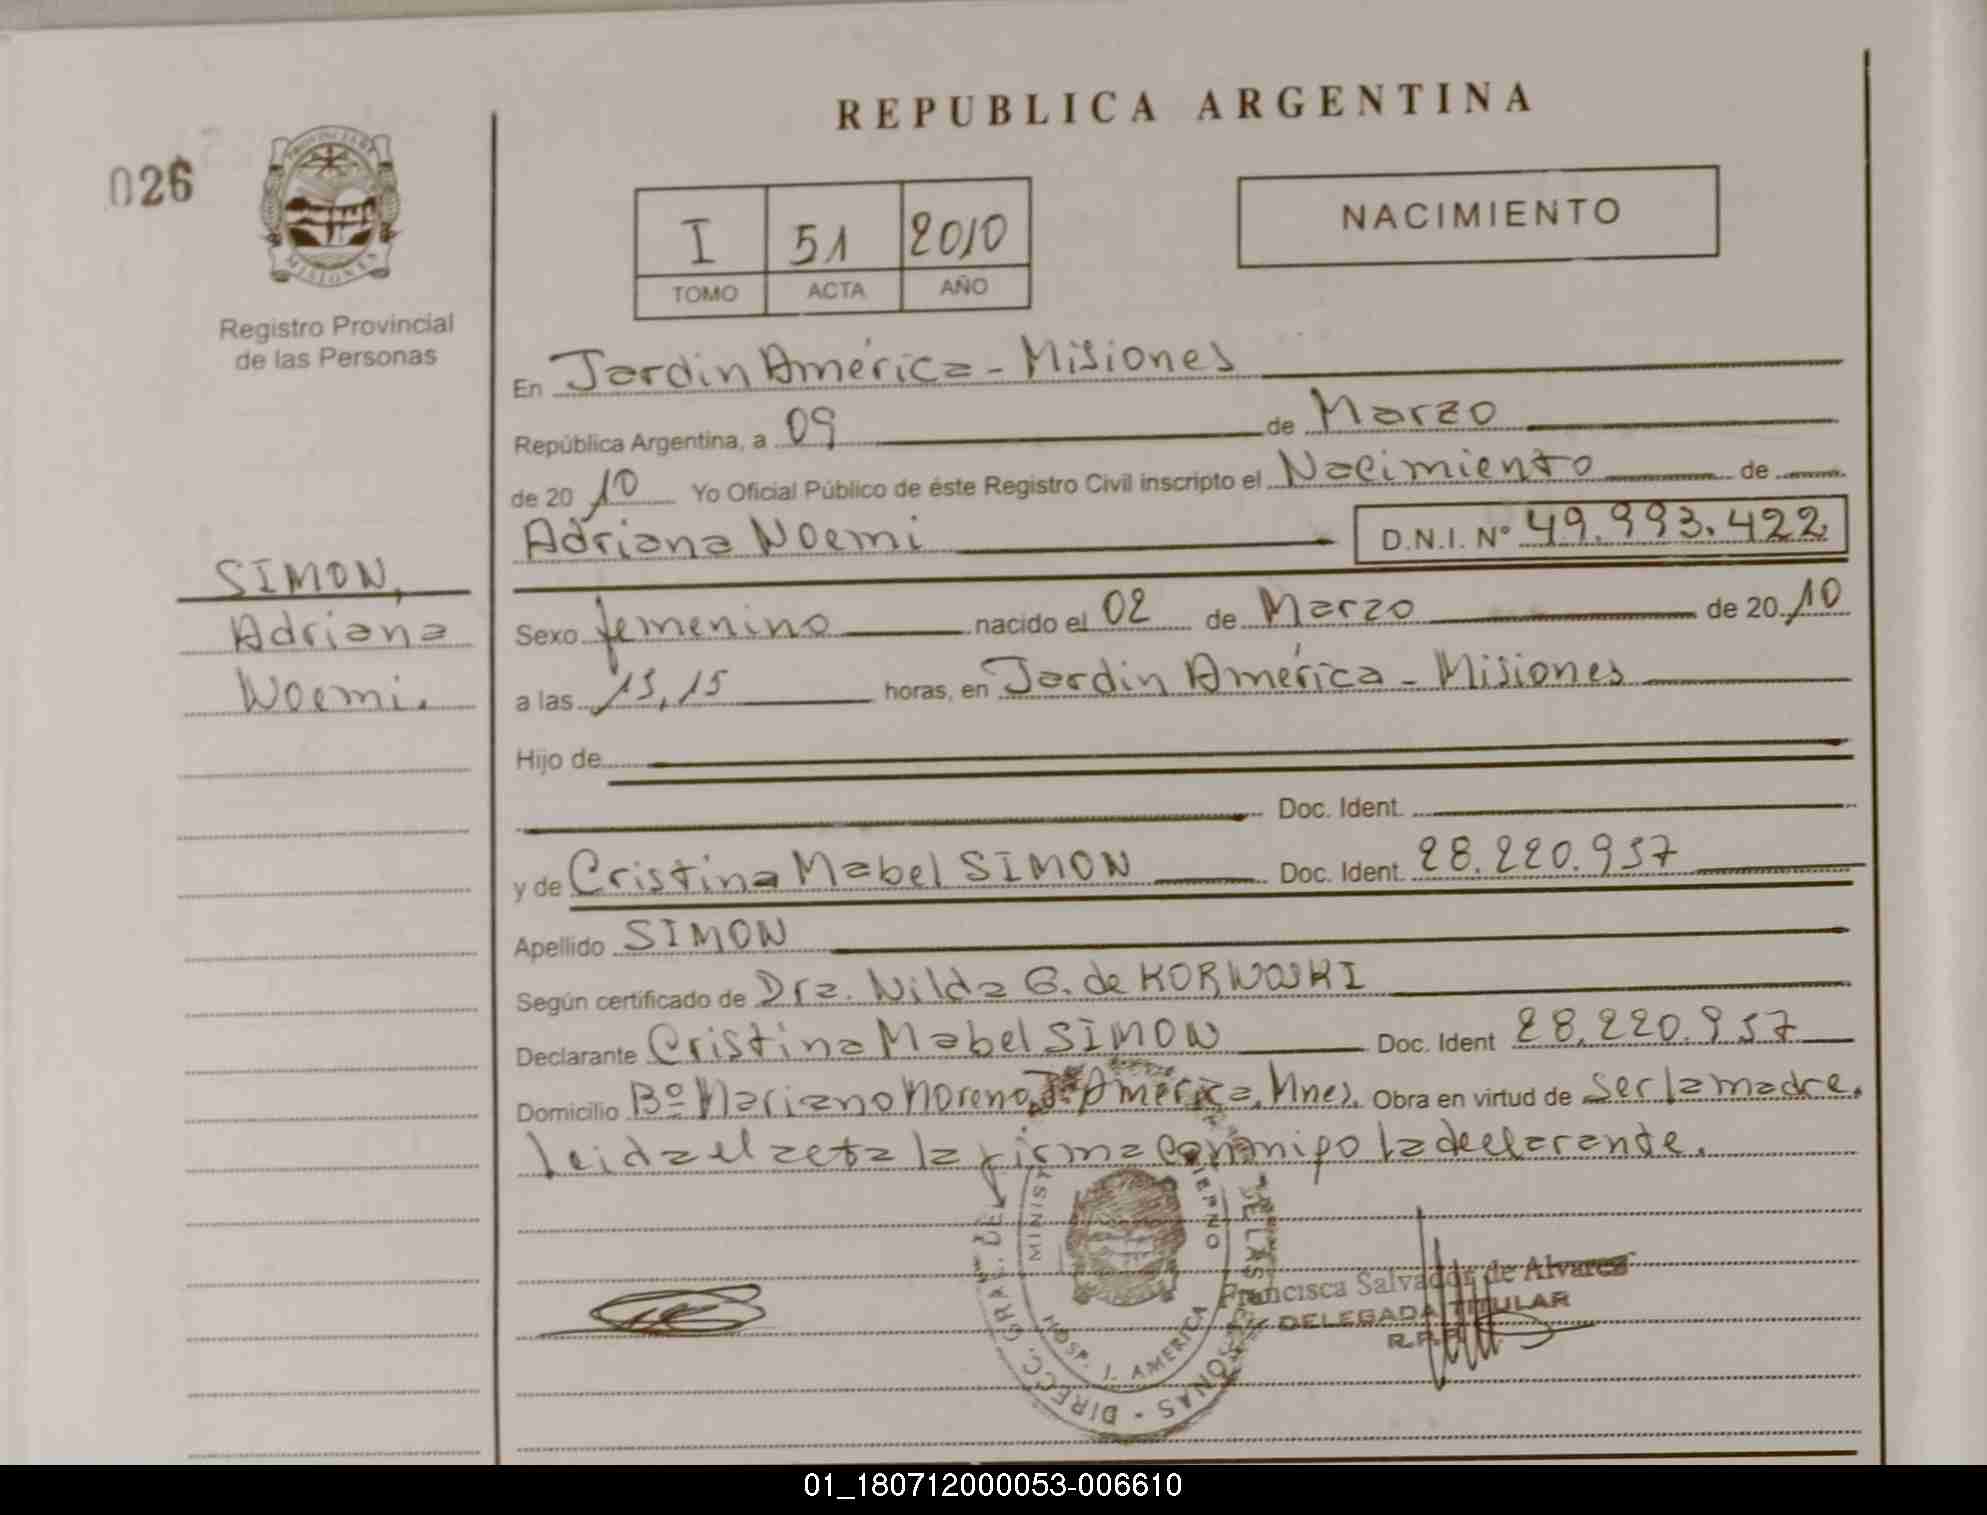 REPUBLICA ARGENTINA
026
PROVINCIA DE
MISIONES
Registro Provincial
de las Personas
I 51 2010
TOMO ACTA AÑO
NACIMIENTO
En Jardin América - Misiones
República Argentina, a 09 de Marzo
de 2010 Yo Oficial Público de éste Registro Civil inscripto el Nacimiento de
Adriana Noemi D.N.I. Nº 49.993.422
SIMON,
Adriana
Noemi.
Sexo femenino nacido el 02 de Marzo de 2010
a las 13,15 horas, en Jardin América - Misiones
Hijo de
Doc. Ident.
y de Cristina Mabel SIMON Doc. Ident. 28.220.937
Apellido SIMON
Según certificado de Dra. Nilda G. de
Declarante Cristina Mabel SIMON Doc. Ident 28.220.937
Domicilio Bº Mariano Moreno, Jº América, Mnes. Obra en virtud de ser la madre.
Leida el acta la firma conmigo la declarante.
DIRECC. GRAL. DE LAS
HOSP. J. AMERICA
Francisca Salvador de Alvarez
DELEGADA TITULAR
R.P.P.
01_180712000053-006610